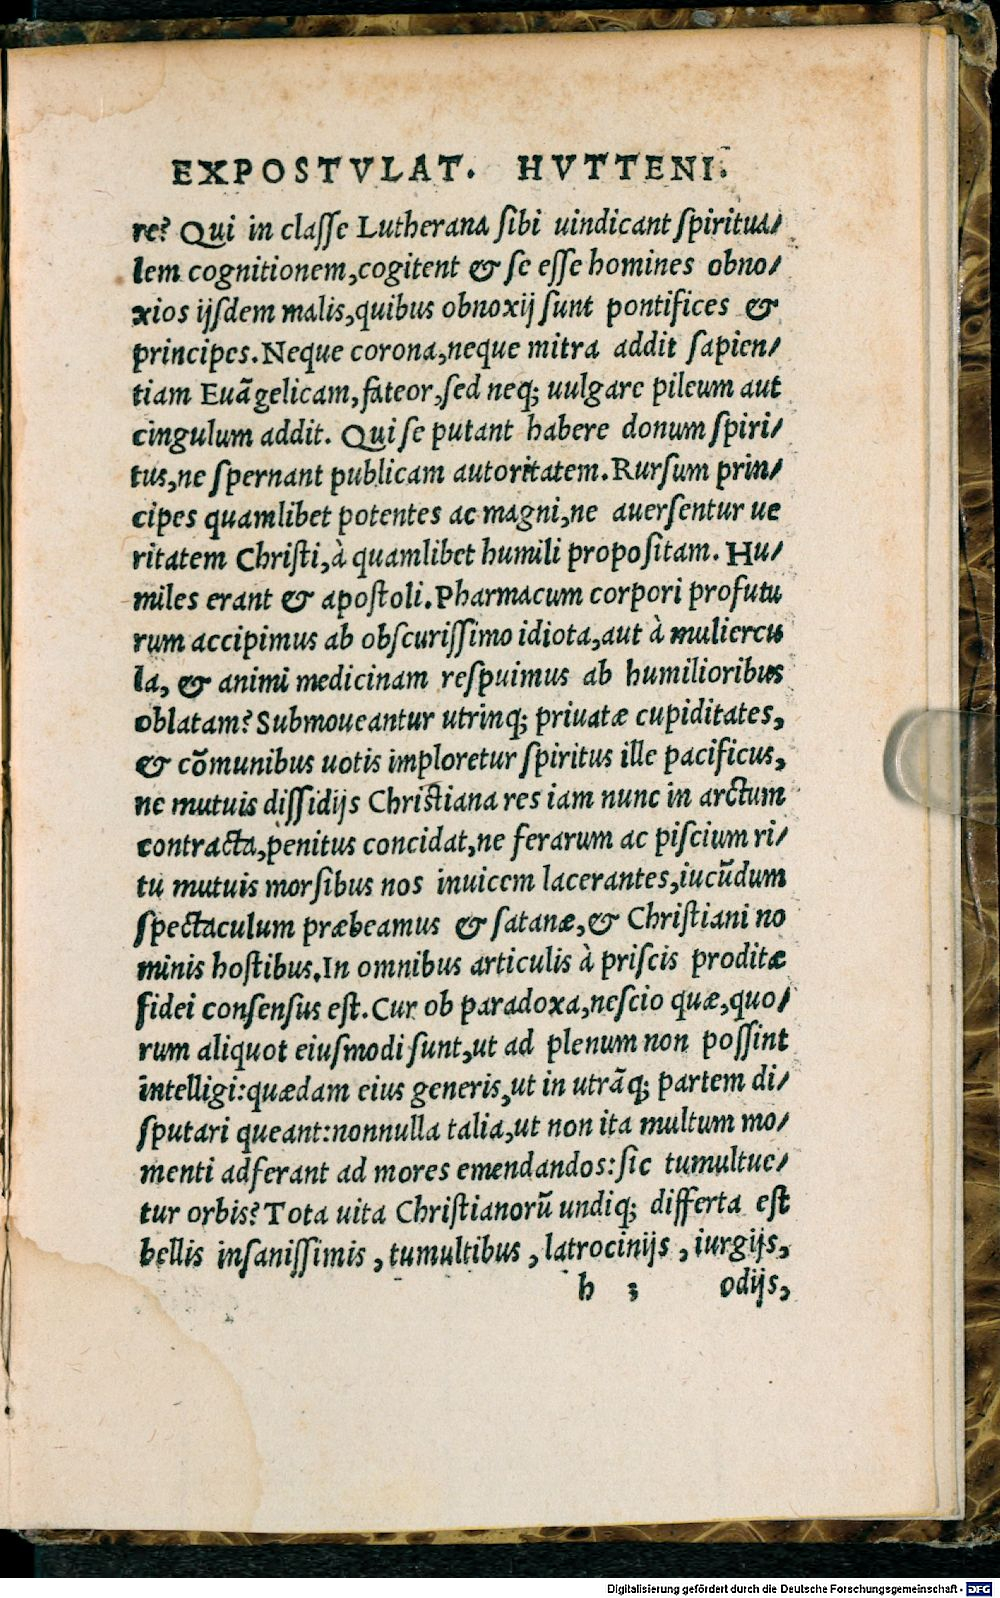 EXPOSTVLAT. HVTTENI.
re? Qui in classe Lutherana sibi uindicant spiritua/
lem cognitionem, cogitent & se esse homines obno/
xios ijsdem malis, quibus obnoxij sunt pontifices &
principes. Neque corona, neque mitra addit sapien/
tiam Euãgelicam, fateor, sed neq; uulgare pileum aut
cingulum addit. Qui se putant habere donum spiri/
tus, ne spernant publicam autoritatem. Rursum prin/
cipes quamlibet potentes ac magni, ne auersentur ue
ritatem Christi, à quamlibet humili propositam. Hu/
miles erant & apostoli. Pharmacum corpori profutu
rum accipimus ab obscurissimo idiota, aut à muliercu
la, & animi medicinam respuimus ab humilioribus
oblatam? Submoueantur utrinq; priuatæ cupiditates,
& cõmunibus uotis imploretur spiritus ille pacificus,
ne mutuis dissidijs Christiana res iam nunc in arctum
contracta, penitus concidat, ne ferarum ac piscium ri/
tu mutuis morsibus nos inuicem lacerantes, iucũdum
spectaculum præbeamus & satanæ, & Christiani no
minis hostibus. In omnibus articulis à priscis proditæ
fidei consensus est. Cur ob paradoxa, nescio quæ, quo/
rum aliquot eiusmodi sunt, ut ad plenum non possint
intelligi: quædam eius generis, ut in utrãq; partem di/
sputari queant: nonnulla talia, ut non ita multum mo/
menti adferant ad mores emendandos: sic tumultue/
tur orbis? Tota uita Christianorũ undiq; differta est
bellis insanissimis, tumultibus, latrocinijs, iurgijs,
h 3 odijs,
Digitalisierung gefördert durch die Deutsche Forschungsgemeinschaft - DFG